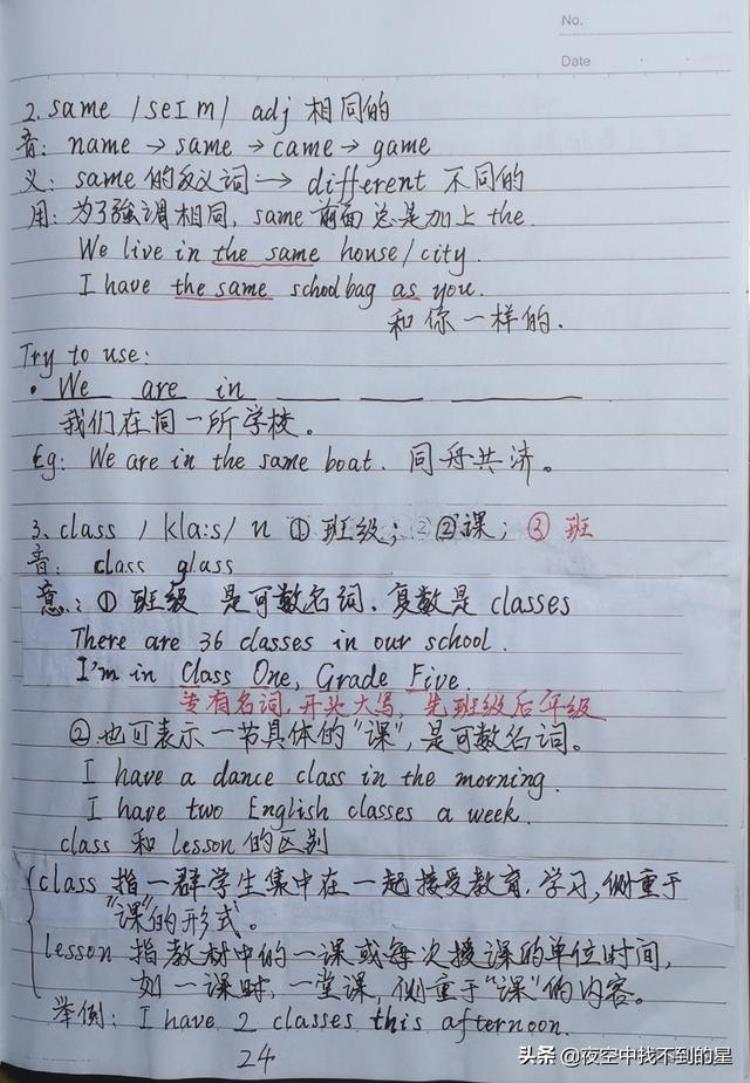 No.
Date
2. same /seIm/ adj 相同的
音: name → same → came → game
义: same 的反义词 → different 不同的
用: 为了强调相同, same 前面总是加上 the.
We live in the same house/city.
I have the same schoolbag as you.
和你一样的.
Try to use:
• We are in ___ ___ ___
我们在同一所学校。
Eg: We are in the same boat. 同舟共济。
3. class /kla:s/ n ① 班级; ② ②课; ③ 班
音: class glass
意: ① 班级 是可数名词. 复数是 classes
There are 36 classes in our school.
I'm in Class One, Grade Five.
专有名词, 开头大写, 先班级后年级
② 也可表示一节具体的"课", 是可数名词。
I have a dance class in the morning.
I have two English classes a week.
class 和 lesson 的区别
class 指一群学生集中在一起接受教育. 学习, 侧重于
"课"的形式。
lesson 指教材中的一课或每次授课的单位时间,
如一课时, 一堂课, 侧重于"课"的内容。
举例: I have 2 classes this afternoon.
24
头条 @夜空中找不到的星